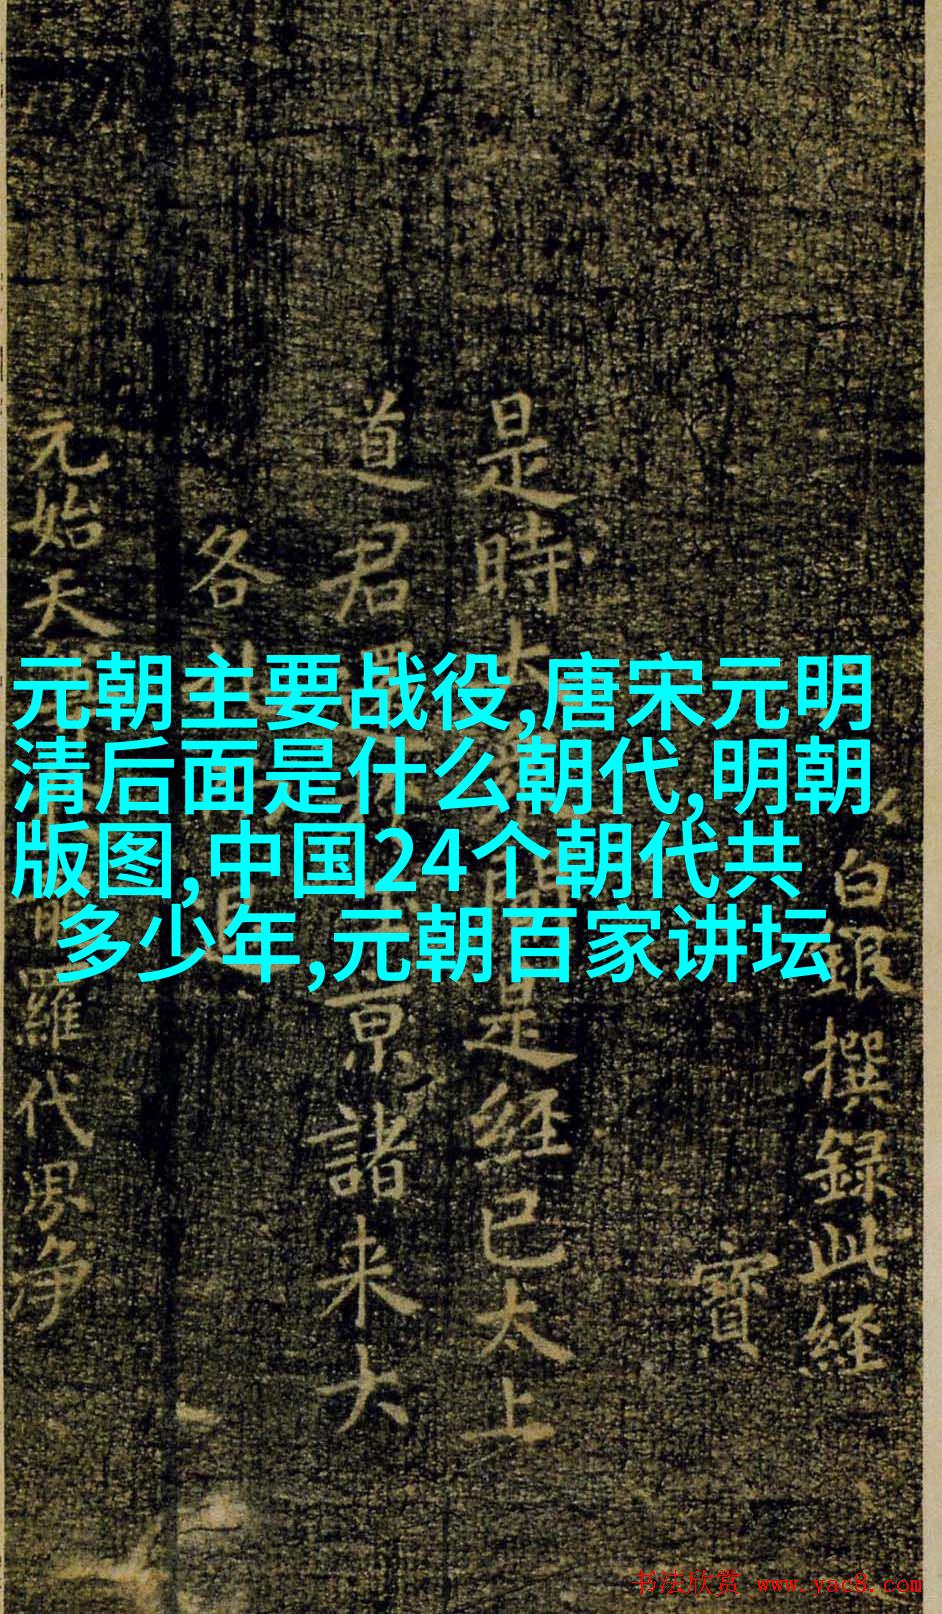 元朝主要战役,唐宋元明
清后面是什么朝代,明朝
版图,中国24个朝代共
多少年,元朝百家讲坛
撰録此經
寶
是時
是經已太上
道君
京諸来大
各
元始天
羅代界净
书法欣赏 www.yac8.com